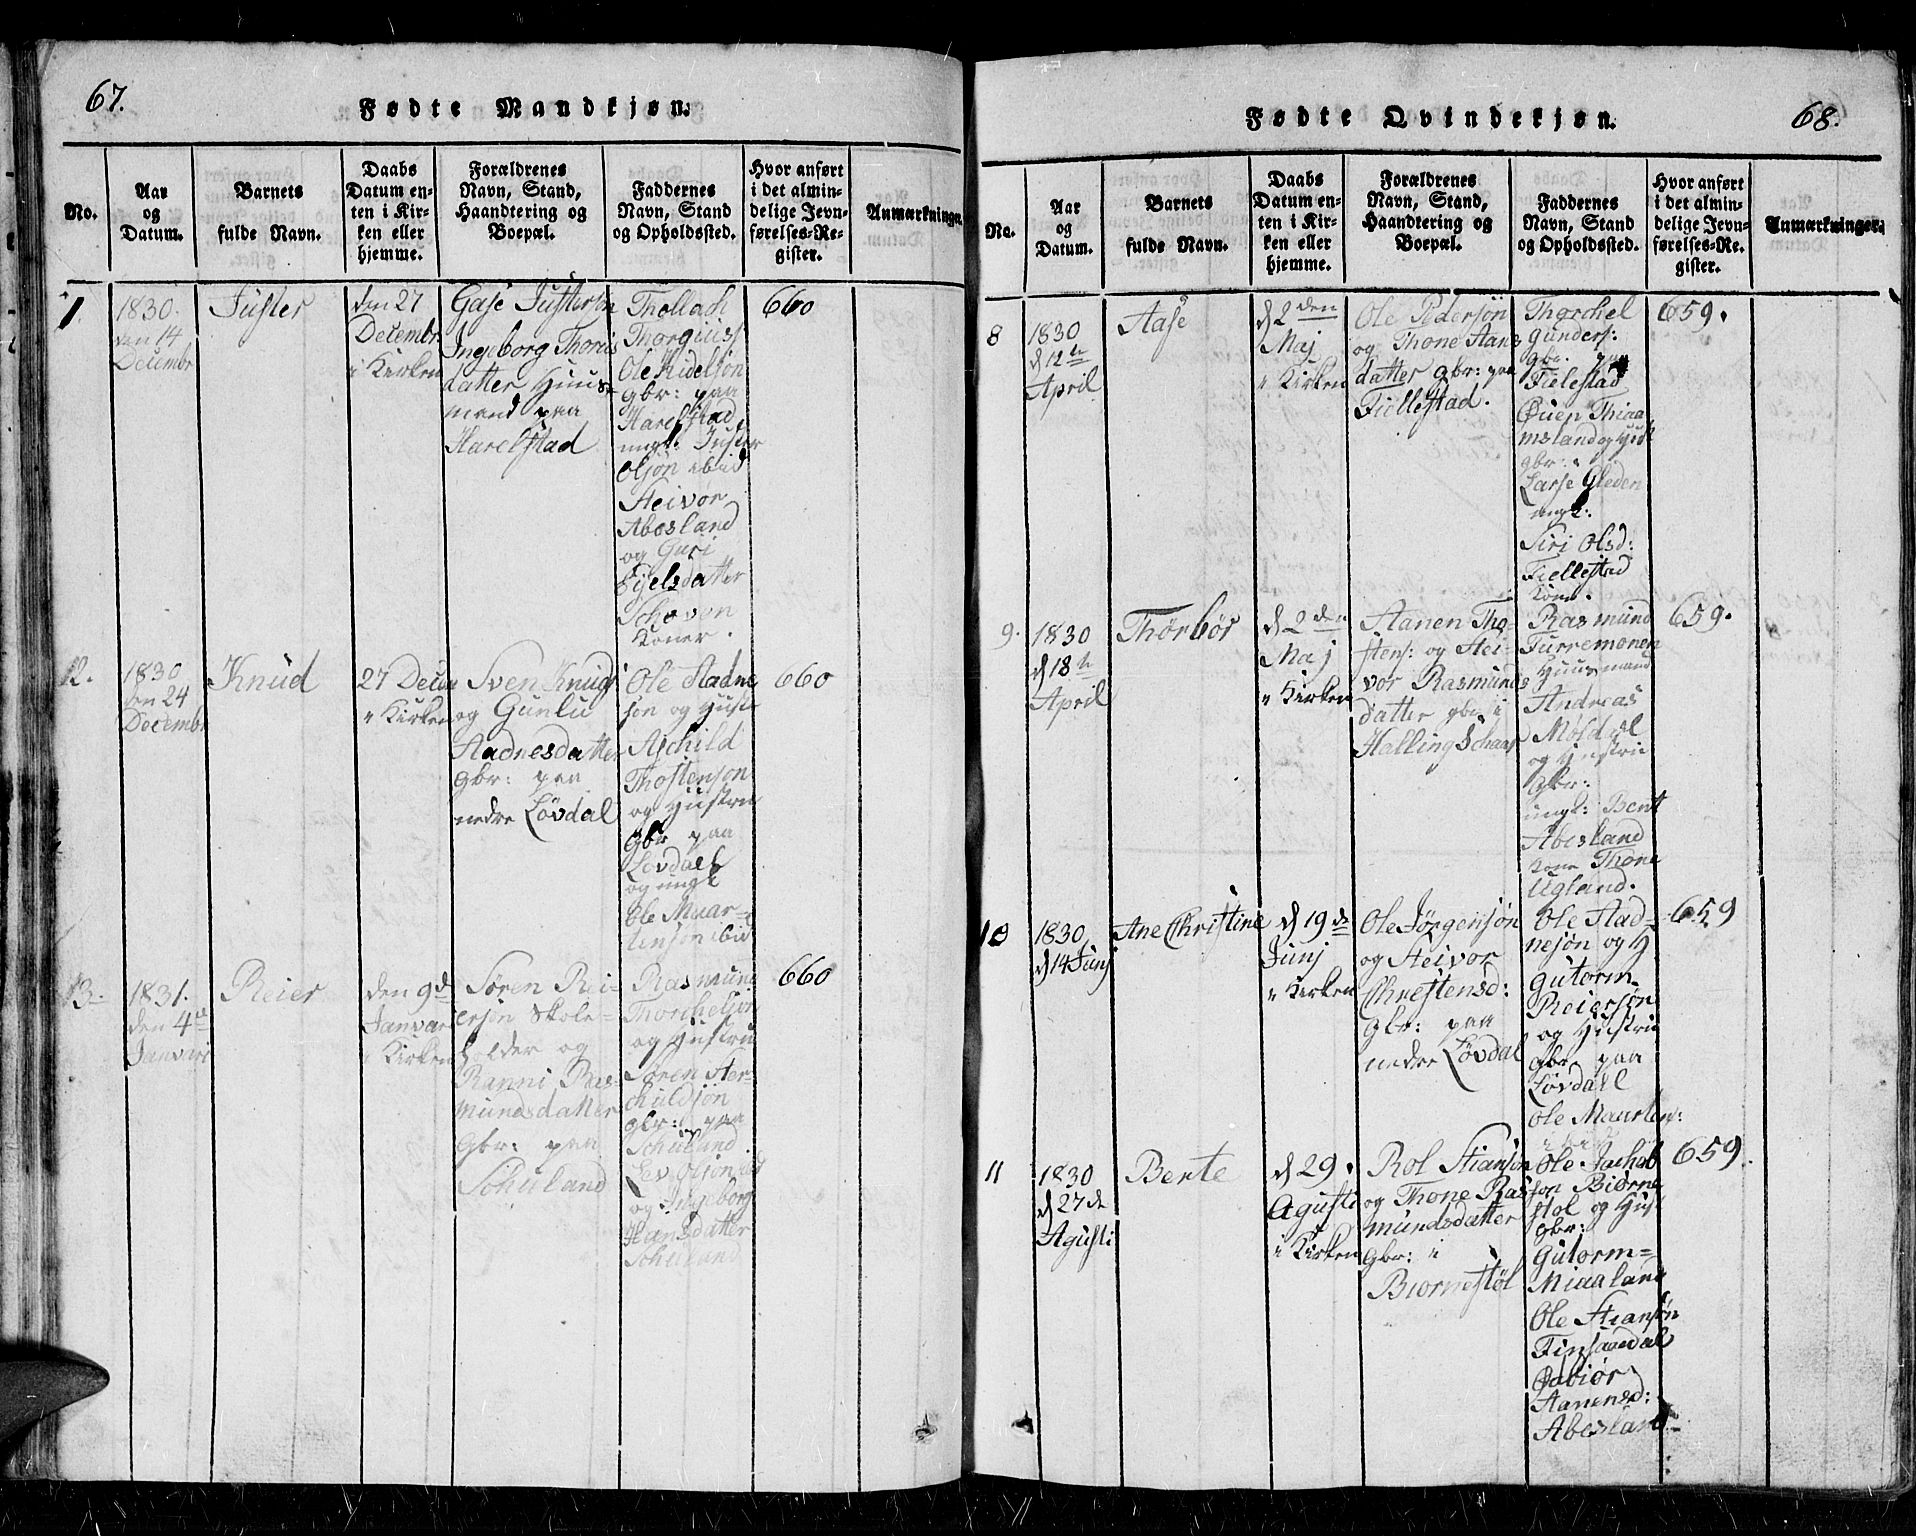 67.
Fødte Mandkjøn.
No.
Aar
og
Datum.
Barnets
fulde Navn.
Daabs
Datum en-
ten i Kir-
ken eller
hjemme.
Forældrenes
Navn, Stand,
Haandtering og
Boepæl.
Faddernes
Navn, Stand
og Opholdssted.
Hvor anført
i det almin-
delige Jevn-
førelses-Re-
gister.
Anmærkninger
1830.
den 14
Decembr
Juster
den 27
Decembr
i Kirken
Gase Justersøn
Ingeborg
datter Huus-
mand paa
Harelstad
Thollach
Ole
gbr: paa
Harelstad
ungk: Juster
Olsøn ibid
Steivør
Abesland
og Guri
Koner.
660
12.
1830
den 24
Decembr
Knud
27 Decem
i Kirken
Sven Knuds
og Gunlu
Stadnesdatter
gbr: paa
nedre Løvdal
Ole Stadne
søn og Hustr
Aschild
Thostenson
og Hustru
gbr paa
Løvdal
og ungk
Ole Maar-
tensøn ibid
660
13.
1831.
den 4de
Janvari
Reier
den 9de
Janvari
i Kirken
Søren Rei-
ersøn Skole-
holder og
Ranni Ras-
mundsdatter
gbr: paa
Schuland
Rasmund
Thorchelsøn
og Hustru
Søren Ster-
chuldsøn
gbr: paa
Schuland
og Ingeborg
Hansdatter
Schuland
660
Fødte Qvindekjøn.
68.
No.
Aar
og
Datum.
Barnets
fulde Navn.
Daabs
Datum en-
ten i Kir-
ken eller
hjemme.
Forældrenes
Navn, Stand,
Haandtering og
Boepæl.
Faddernes
Navn, Stand
og Opholdssted.
Hvor anført
i det almin-
delige Jevn-
førelses-Re-
gister.
Anmærkninger.
8
1830
d 12te
April
Aase
d 2den
Maj
i Kirken
Ole Pedersøn
og Thone Hans
datter gbr: paa
Fiellestad.
Thorchel
Gunders:
gbr. paa
Fielestad
gbr:
ungk:
Siri Olsd:
Fiellestad
Kone.
659.
9.
1830
d 18te
April
Thørbør
d 2den
Maj
i Kirken
Aanen Tho-
stens: og Stei-
vor Rasmunds
datter gbr i
Hallingschaar
Rasmund
Turremonen
Huusmand
Andreas
Møldal
og Hustru
gbr:
ungk: Bent
Abesland
Kone Thone
Ugland.
659.
10
1830
d 14 Junj
Ane Christine
d 19de
Junj
i Kirken
Ole Jørgensøn
og Steivor
Christensd:
gbr: paa
nedre Løvdal
Ole Stad-
nesøn og H
Gutorm
Reiersøn
og Hustru
gbr paa
Løvdal
Ole Maarten:
ibid
659
11
1830
d 27de
Agusti
Berte
d 29.
Agusti
i Kirken
Rol Stiansøn
og Thone Ras-
mundsdatter
gbr: i
Biornestøl
Ole Jachob
søn Biørne
støl og Hus-
gbr:
Gutorm
Miaaland
Ole Stiansøn
Finsaadal
Aanensd:
Abesland.
659.